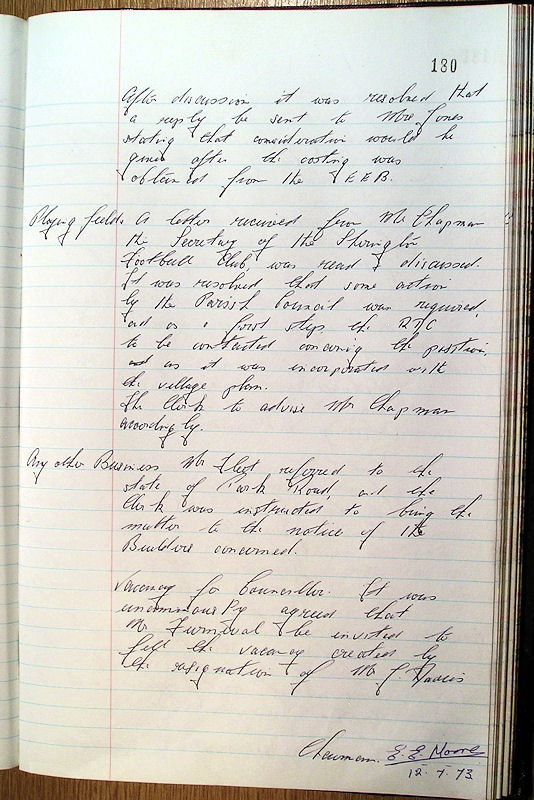 130
After discussion it was resolved that
a reply be sent to Mrs Jones
stating that consideration would be
given after the costing was
obtained from the E.E.B.
Playing fields A letter received from Mr Chapman
the Secretary of the
Football Club, was read & discussed.
It was resolved that some action
by the Parish Council was required,
and as a first step the RDC
to be contacted concerning the position,
as it was incorporated with
the village plan.
The Clerk to advise Mr Chapman
accordingly.
Any other Business Mr Fleet referred to the
state of Park Road, and the
Clerk was instructed to bring the
matter to the notice of the
Builders concerned.
Vacancy for Councillor. It was
unanimously agreed that
Mr Furnival be invited to
fill the vacancy created by
the resignation of Mr J. Davis
Chairman. E. E. Moore
12.7.73